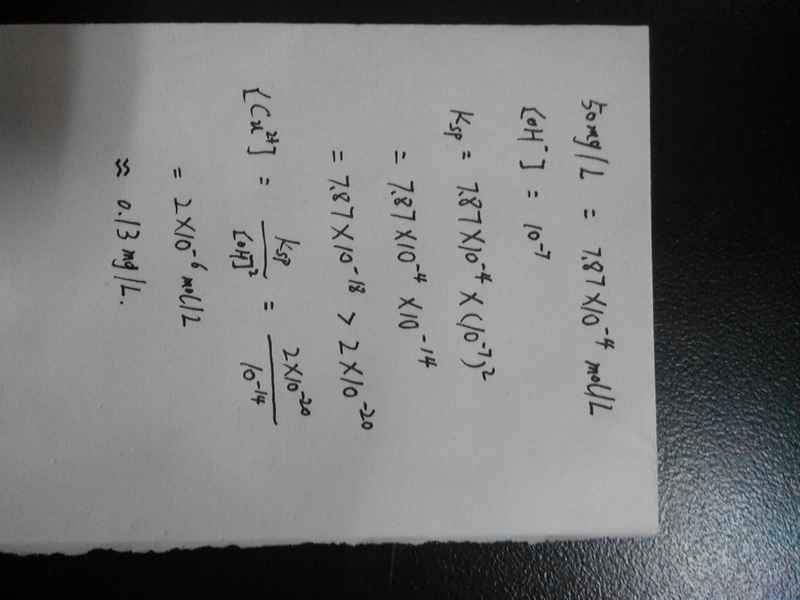 50mg/L = 7.87×10⁻⁴ mol/L
[OH⁻] = 10⁻⁷
Ksp = 7.87×10⁻⁴ × (10⁻⁷)²
= 7.87×10⁻⁴ ×10⁻¹⁴
= 7.87×10⁻¹⁸ > 2×10⁻²⁰
[Cu²⁺] = Ksp/[OH⁻]² = 2×10⁻²⁰/10⁻¹⁴
= 2×10⁻⁶ mol/L
≈ 0.13 mg/L.